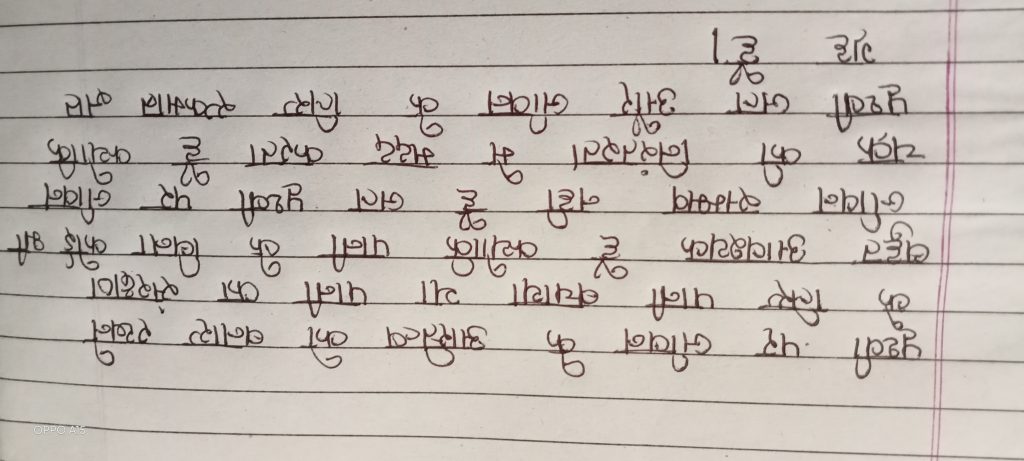 पृथ्वी पर जीवन के अस्तित्व को बनाए रखने
के लिए पानी बचाया या पानी का संरक्षण
बहुत आवश्यक है क्योंकि पानी के बिना कोई भी
जीवन सम्भव नही है जल पृथ्वी पर जीवन
चक्र की निरंतरता में मदद करता है क्योंकि
पृथ्वी जल और जीवन के लिए एकमात्र
है।
OPPO A15